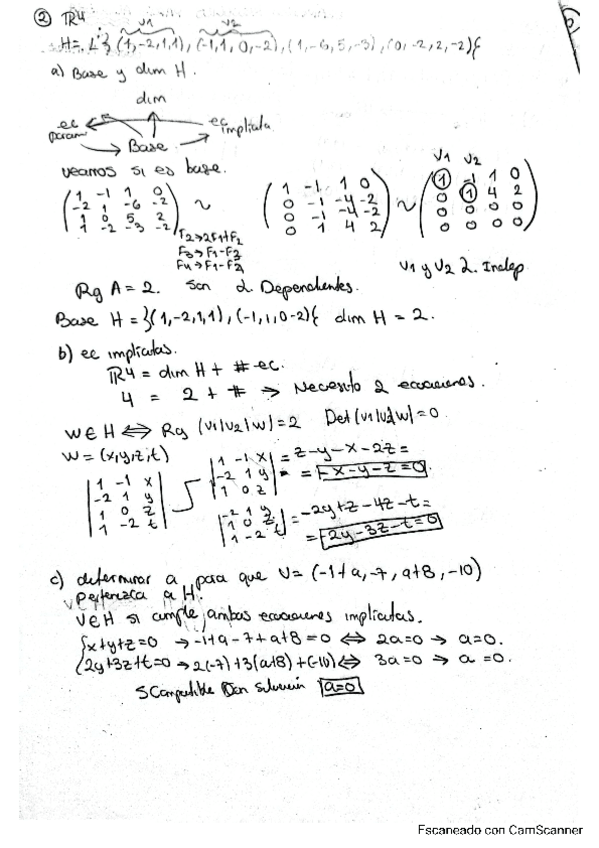 ② ℝ4 V1 V2
H = L { (1,-2,1,1), (-1,1,0,-2), (1,-6,5,-3), (0,-2,2,-2) {
a) Base y dim H.
dim
ec param ec implicita
Base
veamos si es base. V1 V2
( 1 -1 1 0 ) ~ ( 1 -1 1 0 ) ~ ( 1 -1 1 0 )
( -2 1 -6 -2 ) ( 0 -1 -4 -2 ) ( 0 1 4 2 )
( 1 0 5 2 ) ( 0 -1 -4 -2 ) ( 0 0 0 0 )
( 1 -2 -3 -2 ) ( 0 1 4 2 ) ( 0 0 0 0 )
F2→2F1+F2
F3→F1-F2
F4→F1-F2
V1 y V2 l. Indep
Rg A = 2. Son l. Dependientes.
Base H = }(1,-2,1,1), (-1,1,0-2){ dim H = 2.
b) ec implicitas.
ℝ4 = dim H + # ec.
4 = 2 + # → Necesito 2 ecuaciones.
W∈H ⟺ Rg (V1|V2|W)=2 Det(V1|V2|W)=0.
W = (x,y,z,t)
| 1 -1 x | | 1 -1 x | = z-y-x-2z =
| -2 1 y | | -2 1 y | = -x-y-z=0.
| 1 0 z | | 1 0 z |
| 1 -2 t | | -2 1 y | = -2y+z-4z-t =
| 1 0 z | = -2y-3z-t=0
| 1 -2 t |
c) determinar a para que V = (-1+a,-7,a+8,-10)
pertenezca a H.
V∈H si cumple ambas ecuaciones implicitas.
{x+y+z=0 → -1+a-7+a+8=0 ⟺ 2a=0 → a=0.
(2y+3z+t=0 → 2(-7)+3(a+8)+(-10) ⟺ 3a=0 → a=0.
SCompatible Con Solución a=0
Escaneado con CamScanner